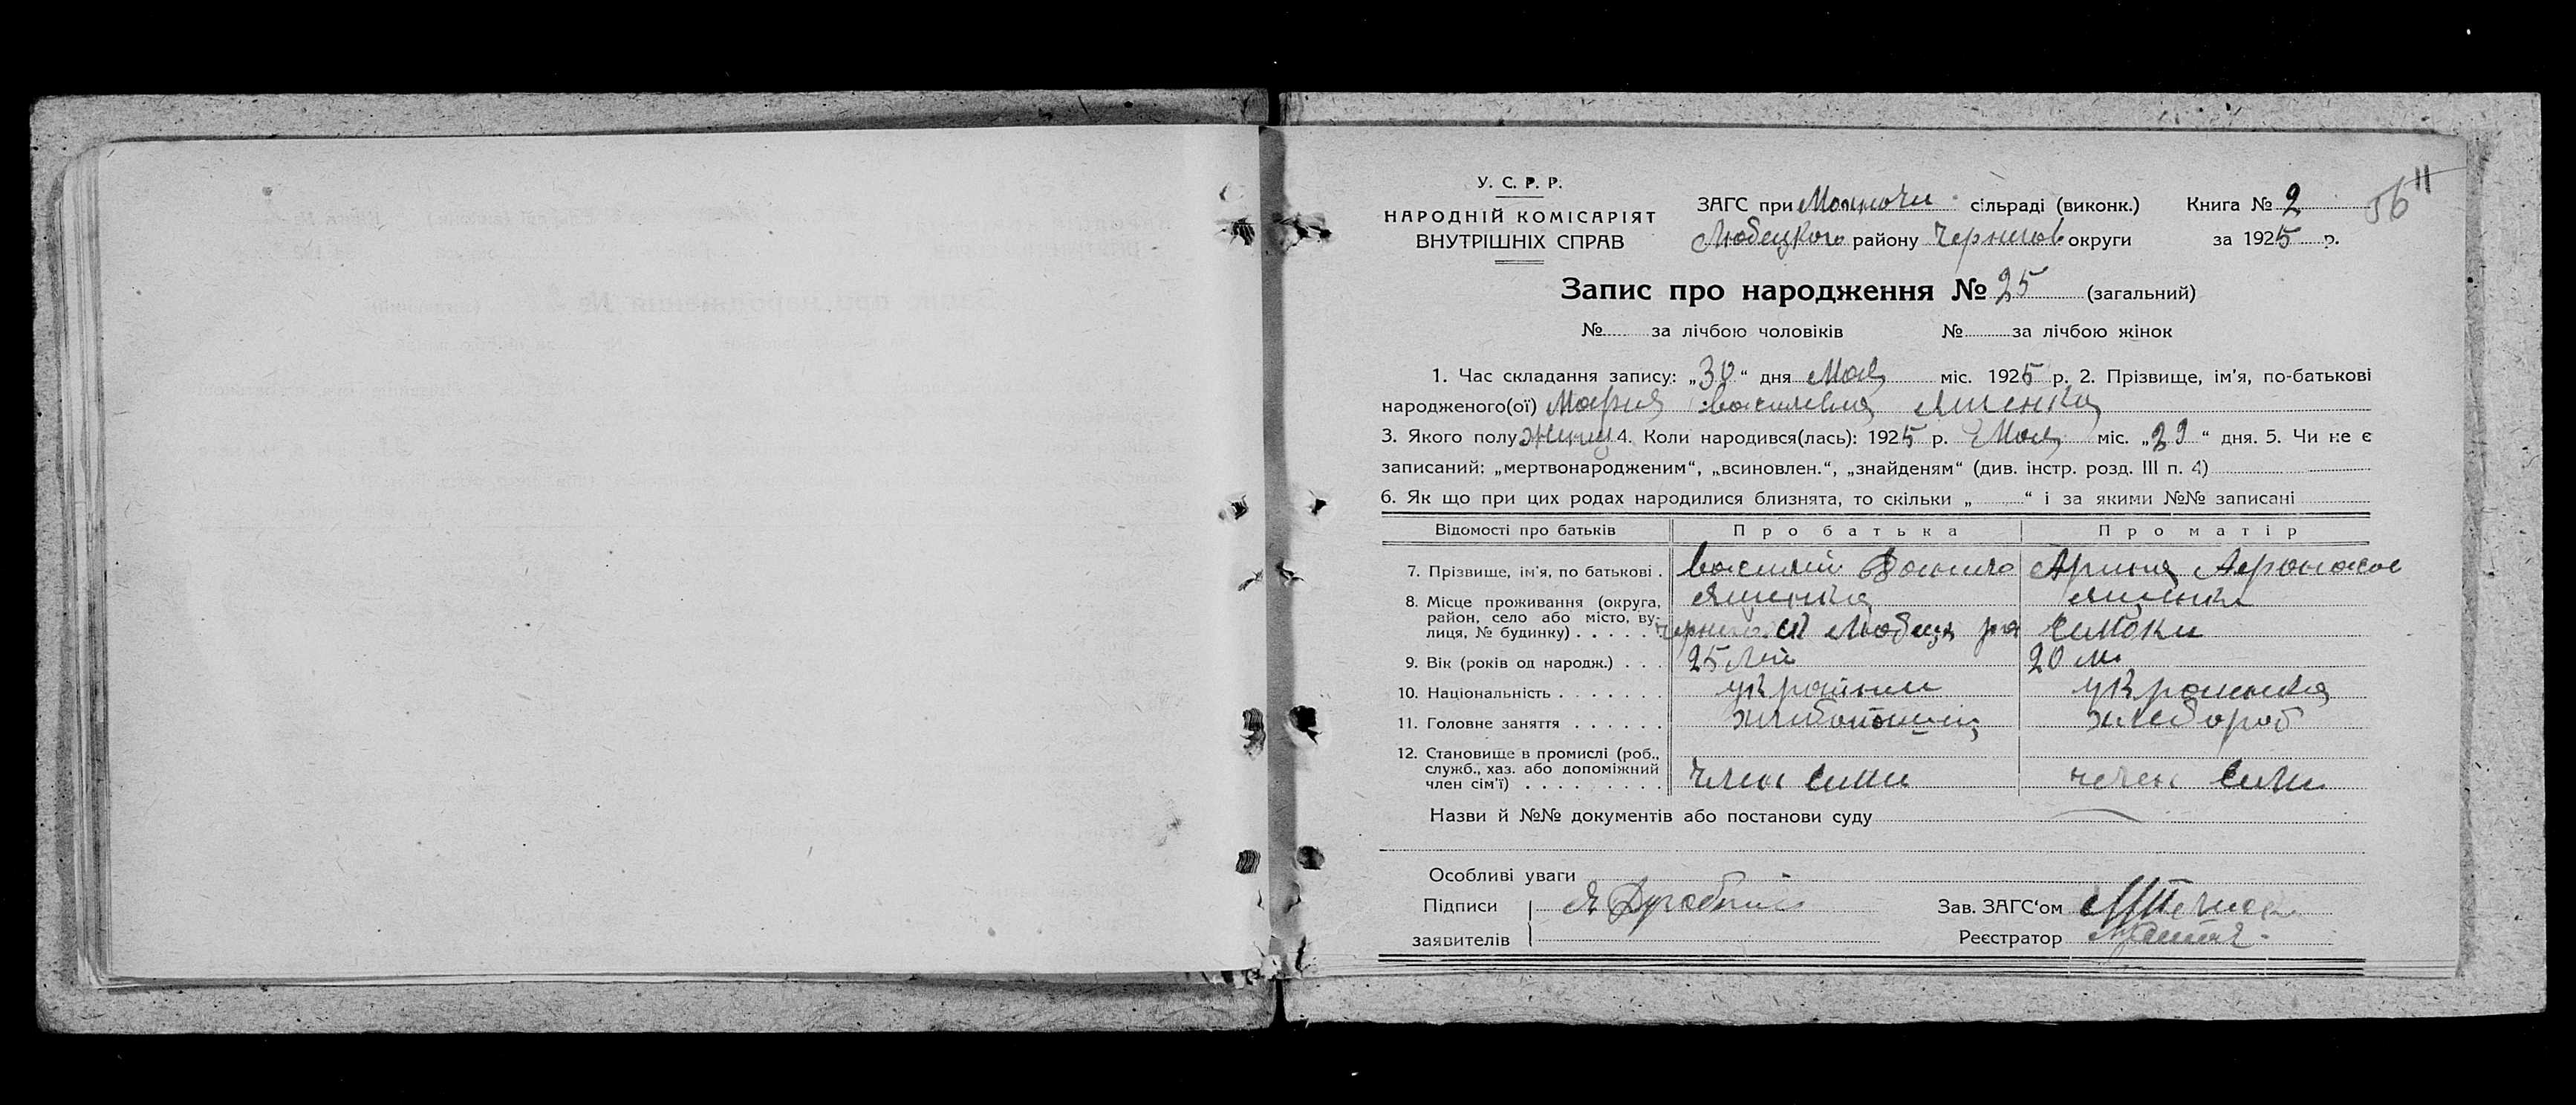 У. С. Р. Р.
НАРОДНІЙ КОМІСАРІЯТ
ВНУТРІШНІХ СПРАВ
ЗАГС при сільраді (виконк.) Книга № 2
Любецкого району Чернигов округи за 1925 р.
56 11
Запис про народження № 25 (загальний)
№ за лічбою чоловіків № за лічбою жінок
1. Час складання запису: „30“ дня Мая міс. 1925 р. 2. Прізвище, ім'я, по-батькові
народженого(ої) Мария василевна Яшенка
3. Якого полу 4. Коли народився(лась): 1925 р. Мая міс. „29“ дня. 5. Чи не є
записаний: „мертвонародженим“, „всиновлен.“, „знайденям“ (див. інстр. розд. III п. 4)
6. Як що при цих родах народилися близнята, то скільки „ “ і за якими №№ записані
Відомості про батьків Про батька Про матір
7. Прізвище, ім'я, по батькові . василий Арина
Яшенка
8. Місце проживання (округа, район, село або місто, вулиця, № будинку) . . . . . Любецк
9. Вік (років од народж.) . . . 25 лет 20 ле
10. Національність . . . . . . . украинка
11. Головне заняття . . . . . . хлебороб
12. Становище в промислі (роб., служб., хаз. або допоміжний член сім'ї) . . . . . . . . . член сими член сими
Назви й №№ документів або постанови суду
Особливі уваги
Підписи
заявителів
Зав. ЗАГС‘ом
Реєстратор